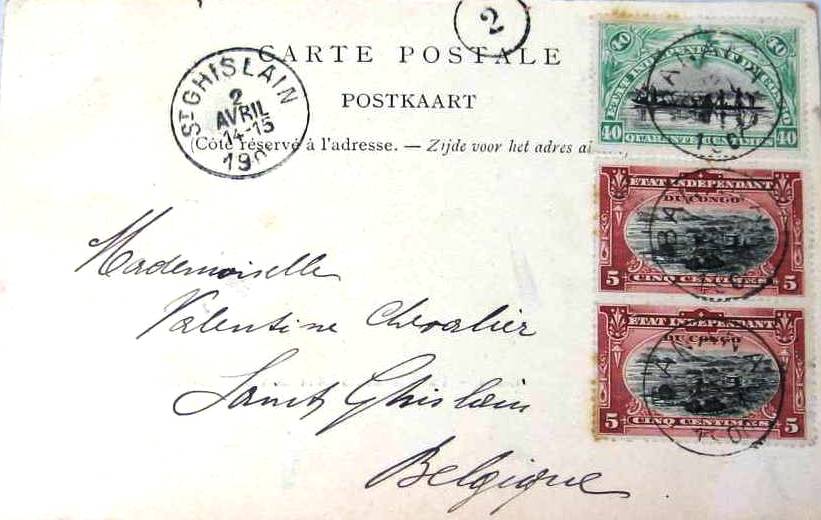 2
CARTE POSTALE
POSTKAART
(Côté réservé à l'adresse. — Zijde voor het adres
ST GHISLAIN
2
AVRIL
14-15
190
40 40
ETAT INDEPENDANT DU CONGO
40 QUARANTE CENTIMES 40
ETAT INDEPENDANT
DU CONGO
5 CINQ CENTIMES 5
ETAT INDEPENDANT
DU CONGO
5 CINQ CENTIMES 5
BANANA
Mademoiselle
Valentine Chevalier
Saint Ghislain
Belgique